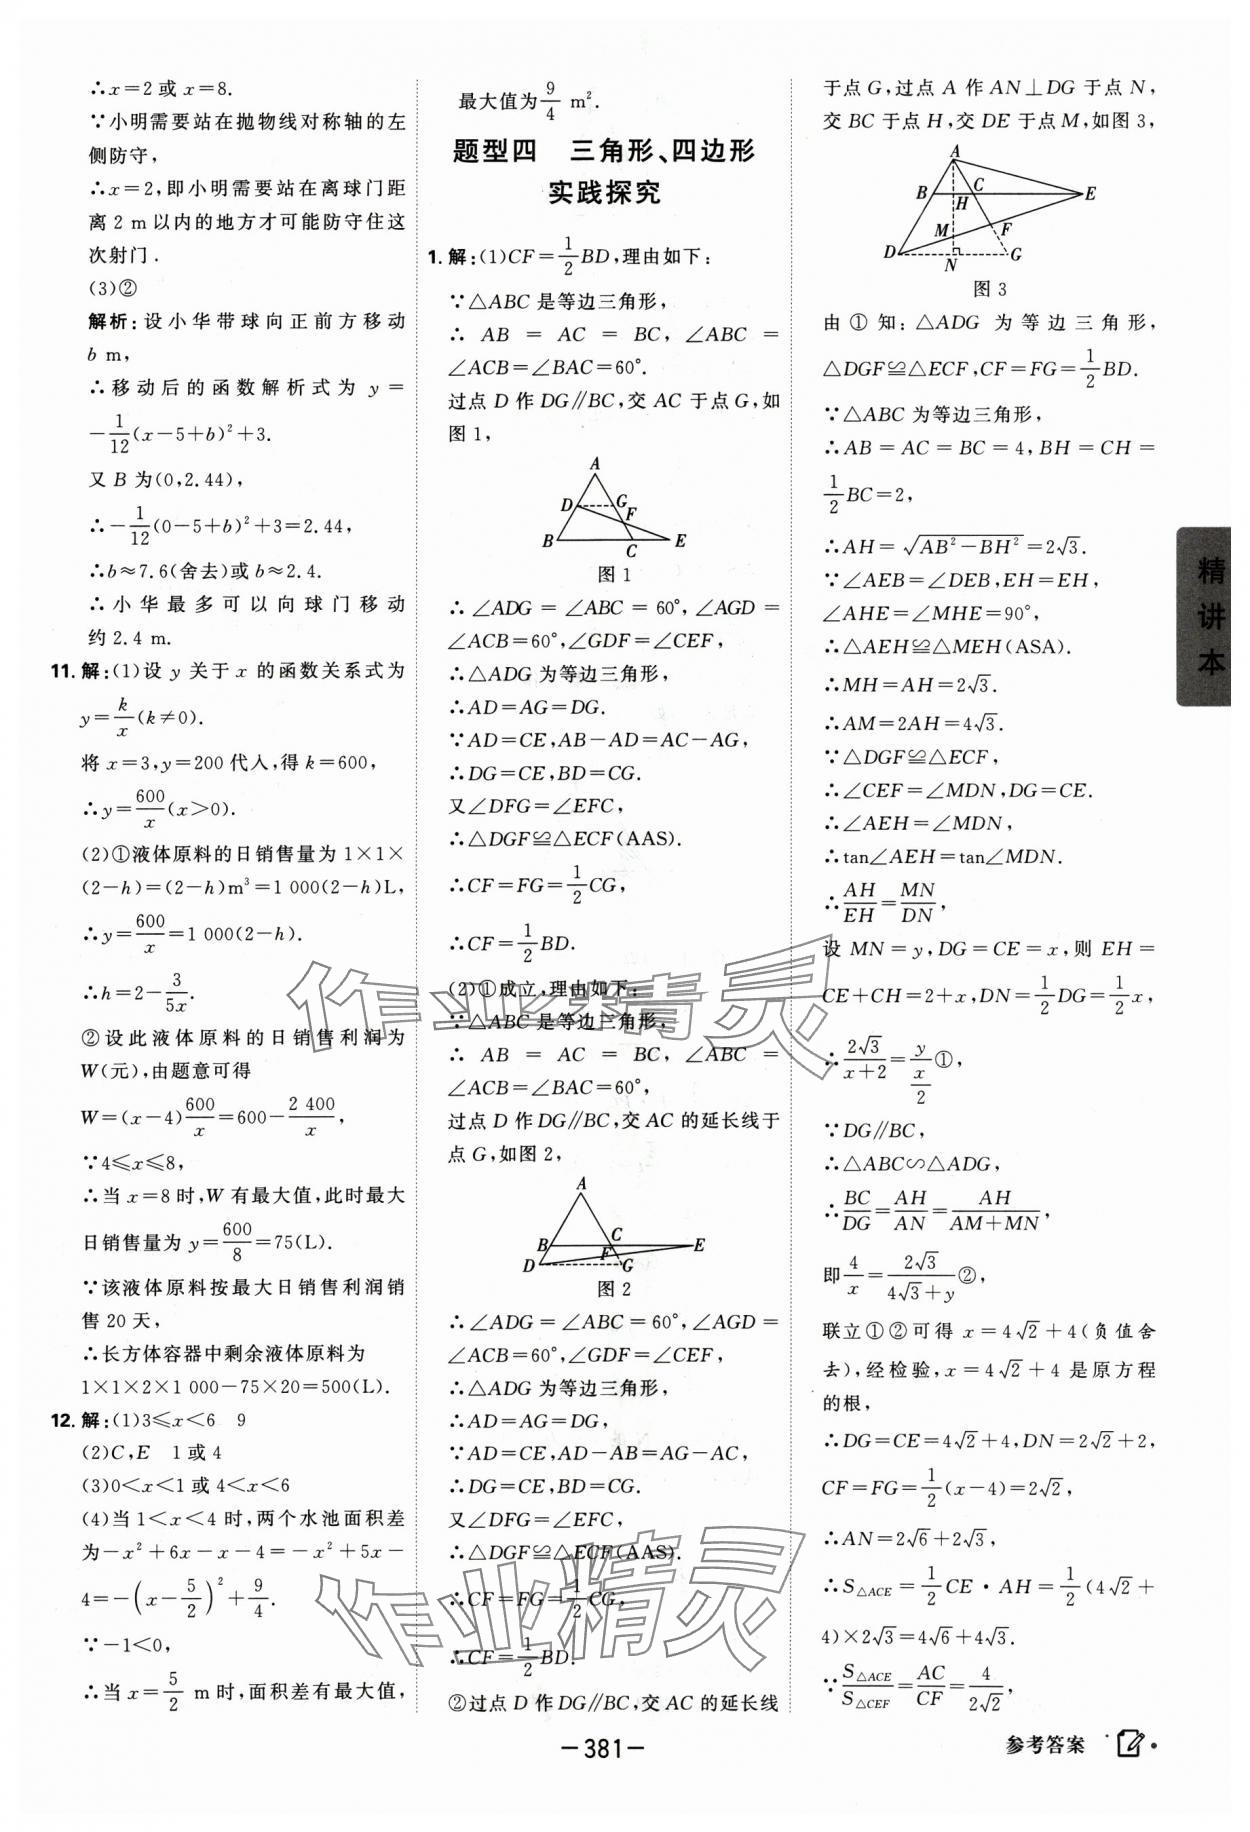 ∴x=2 或 x=8.
∵小明需要站在抛物线对称轴的左
侧防守,
∴x=2,即小明需要站在离球门距
离 2 m以内的地方才可能防守住这
次射门.
(3)②
解析:设小华带球向正前方移动
b m,
∴移动后的函数解析式为 y=
-1/12(x-5+b)²+3.
又 B 为(0,2.44),
∴-1/12(0-5+b)²+3=2.44,
∴b≈7.6(舍去)或 b≈2.4.
∴小华最多可以向球门移动
约 2.4 m.
11.解:(1)设 y 关于 x 的函数关系式为
y=k/x(k≠0).
将 x=3,y=200 代入,得 k=600,
∴y=600/x(x>0).
(2)①液体原料的日销售量为 1×1×
(2-h)=(2-h)m³=1 000(2-h)L,
∴y=600/x=1 000(2-h).
∴h=2-3/5x.
②设此液体原料的日销售利润为
W(元),由题意可得
W=(x-4)600/x=600-2 400/x,
∵4≤x≤8,
∴当 x=8 时,W 有最大值,此时最大
日销售量为 y=600/8=75(L).
∵该液体原料按最大日销售利润销
售 20 天,
∴长方体容器中剩余液体原料为
1×1×2×1 000-75×20=500(L).
12.解:(1)3≤x<6 9
(2)C,E 1 或 4
(3)0<x<1 或 4<x<6
(4)当 1<x<4 时,两个水池面积差
为-x²+6x-x-4=-x²+5x-
4=-(x-5/2)²+9/4.
∵-1<0,
∴当 x=5/2 m时,面积差有最大值,
最大值为9/4 m².
题型四 三角形、四边形
实践探究
1.解:(1)CF=1/2BD,理由如下:
∵△ABC 是等边三角形,
∴ AB = AC = BC, ∠ABC =
∠ACB=∠BAC=60°.
过点 D 作 DG∥BC,交 AC 于点 G,如
图 1,
A
D
G
F
B
C
E
图 1
∴∠ADG = ∠ABC = 60°, ∠AGD =
∠ACB=60°,∠GDF=∠CEF,
∴△ADG 为等边三角形,
∴AD=AG=DG.
∵AD=CE,AB-AD=AC-AG,
∴DG=CE,BD=CG.
又∠DFG=∠EFC,
∴△DGF≌△ECF(AAS).
∴CF=FG=1/2CG,
∴CF=1/2BD.
(2)①成立,理由如下:
∵△ABC 是等边三角形,
∴ AB = AC = BC, ∠ABC =
∠ACB=∠BAC=60°,
过点 D 作 DG∥BC,交 AC 的延长线于
点 G,如图 2,
A
B
C
E
F
D
G
图 2
∴∠ADG = ∠ABC = 60°, ∠AGD =
∠ACB=60°,∠GDF=∠CEF,
∴△ADG 为等边三角形,
∴AD=AG=DG,
∵AD=CE,AD-AB=AG-AC,
∴DG=CE,BD=CG.
又∠DFG=∠EFC,
∴△DGF≌△ECF(AAS).
∴CF=FG=1/2CG,
∴CF=1/2BD.
②过点 D 作 DG∥BC,交 AC 的延长线
于点 G,过点 A 作 AN⊥DG 于点 N,
交 BC 于点 H,交 DE 于点 M,如图 3,
A
B
C
E
H
M
F
D
N
G
图 3
由 ① 知: △ADG 为等边三角形,
△DGF≌△ECF,CF=FG=1/2BD.
∵△ABC 为等边三角形,
∴AB = AC = BC = 4, BH = CH =
1/2BC=2,
∴AH=√(AB²-BH²)=2√3.
∵∠AEB=∠DEB,EH=EH,
∠AHE=∠MHE=90°,
∴△AEH≌△MEH(ASA).
∴MH=AH=2√3.
∴AM=2AH=4√3.
∵△DGF≌△ECF,
∴∠CEF=∠MDN,DG=CE.
∴∠AEH=∠MDN,
∴tan∠AEH=tan∠MDN.
∴AH/EH=MN/DN,
设 MN = y, DG = CE = x, 则 EH =
CE+CH=2+x,DN=1/2DG=1/2x,
∴2√3/(x+2)=y/(x/2)①,
∵DG∥BC,
∴△ABC∽△ADG,
∴BC/DG=AH/AN=AH/(AM+MN),
即4/x=2√3/(4√3+y)②,
联立①②可得 x=4√2+4(负值舍
去),经检验,x=4√2+4 是原方程
的根,
∴DG=CE=4√2+4,DN=2√2+2,
CF=FG=1/2(x-4)=2√2,
∴AN=2√6+2√3,
∴S△ACE=1/2CE·AH=1/2(4√2+
4)×2√3=4√6+4√3.
∵S△ACE/S△CEF=AC/CF=4/2√2,
精讲本
作业精灵
作业精灵
-381-
参考答案